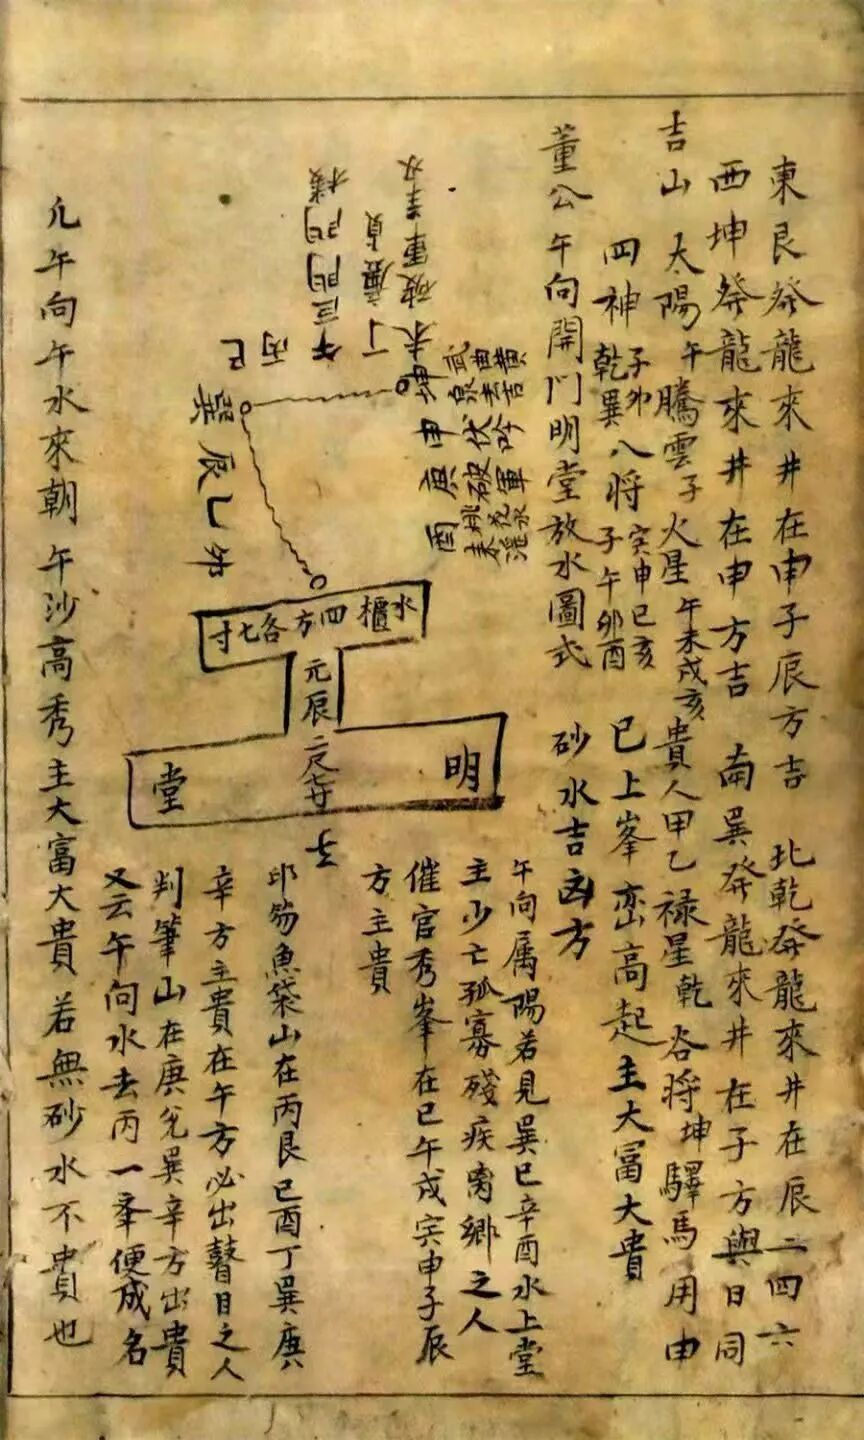 東艮發龍來井在申子辰方吉　北乾發龍來井在辰二四六
西坤發龍來井在申方吉　南巽發龍來井在子方與日同
吉山　太陽午騰雲子火星午未戌亥貴人甲乙祿星乾谷將坤驛馬用申
四神子卯乾巽八將寅申巳亥子午卯酉　已上峯巒高起主大富大貴
董公午向開門明堂放水圖式　砂水吉凶方
午向属陽若見巽巳辛酉水上堂
主少亡孤寡殘疾离鄉之人
催官秀峯在巳午戌寅申子辰
方主貴
未破軍
丁廉貞
午
丙巳
巽辰乙卯
坤武曲
申伏吟
庚破軍
酉桃花
水櫃四方各七寸
元辰二尺
明堂
印笏魚袋山在丙艮巳酉丁巽庚
辛方主貴在午方必出瞽目之人
判筆山在庚兌巽辛方出貴
又云午向水去丙一峯便成名
凢午向午水來朝午沙高秀主大富大貴若無砂水不貴也